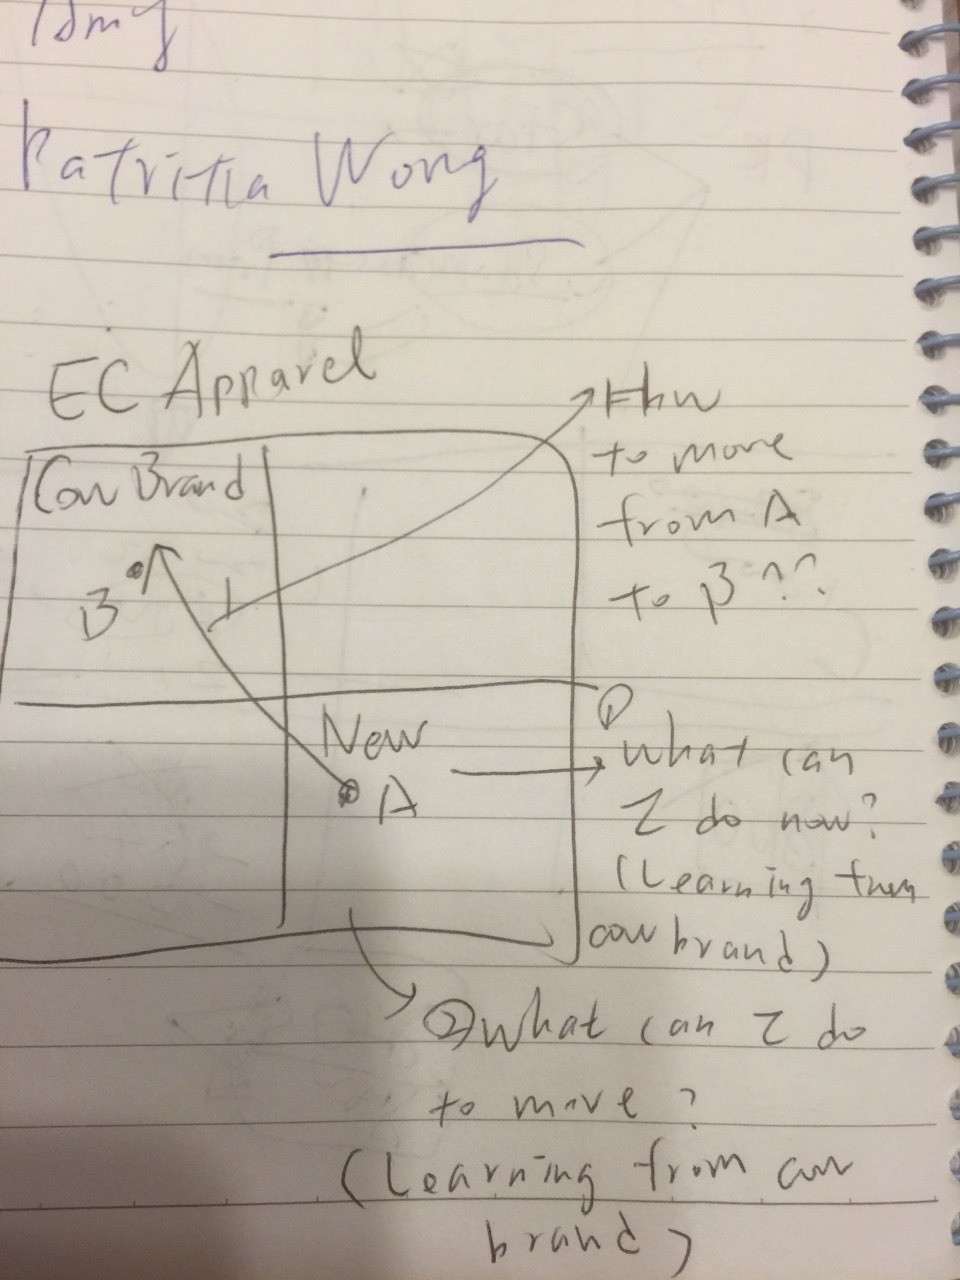 Patritia Wong
EC Apparel
Cow Brand
B
New
A
How
to move
from A
to B ??
①
What can
I do now?
(Learning from
cow brand)
② What can I do
to move?
(Learning from cow
brand)